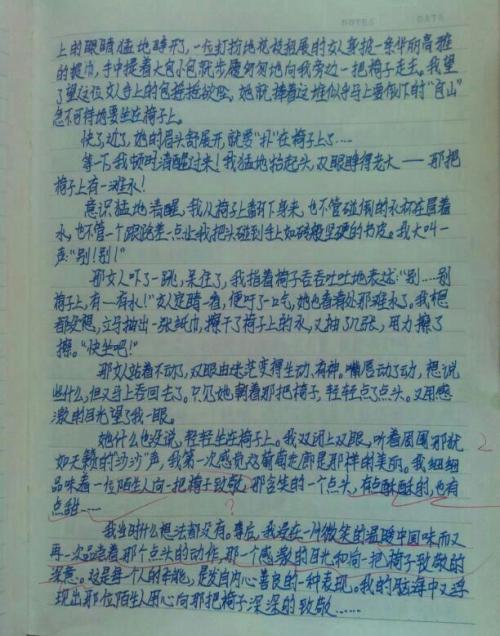 NOTES DATE
上的眼睛猛地睁开,一位打扮地花枝招展的女人身披一条华丽高雅
的披巾,手中提着大包小包就步履匆匆地向我旁边一把椅子走去。我望
了望这位女人手上的包摇摇欲坠。她就捧着这堆似乎马上要倒下的“包山”
急不可待地要坐在椅子上。
快了,近了,她的眉头舒展开,就要“扑”在椅子上了……
等一下,我顿时清醒过来!我猛地抬起头,双眼睁得老大——那把
椅子上有一滩水!
意识猛地清醒,我从椅子上翻下身来,也不管碰倒的水杯在冒着
水,也不管一个踉跄差一点让我把头碰到手上如砖般坚硬的书皮。我大叫一
声“别!别!”
那女人吓了一跳,呆住了,我指着椅子吞吞吐吐地表述:“别……别
椅子上,有—有水!”女人定睛一看,便吁了一口气,她也看着处那滩水了。我想
都没想,立马抽出一张纸巾,擦干了椅子上的水,又抽了几张,用力擦了
擦。“快坐吧!”
那女站着不动了,双眼由迷茫变得生动、有神。嘴唇动了动,想说
些什么,但又马上吞回去了。只见她朝着那把椅子,轻轻点了点头。又用感
激的目光望了我一眼。
她什么也没说,轻轻坐在椅子上。我双闭上双眼,听着周围那犹
如天籁的“沙沙”声,我第一次感觉这葡萄走廊是那样的美丽。我细细
品味着一位陌生人向一把椅子致敬,那含笑的一个点头,有点酥酥的,也有
点甜……
我当时什么想法都没有。事后,我浸在一片微笑的温暖中回味而又
再一次品意着那个点头的动作,那一个感激的目光和向一把椅子致敬的
深意。这是每个人的本能,是发自内心善良的一种表现。我的脑海中又浮
现出那位陌生人用心向那把椅子深深的致敬……
2
?